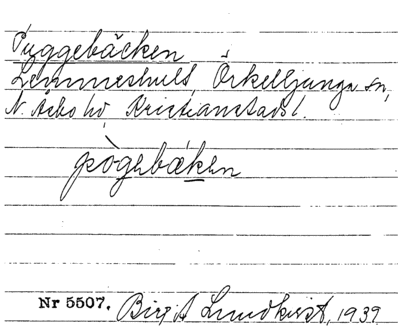 Puggebäcken
Lemmeshult, Örkelljunga sn,
N. Åsbo hd, Kristianstads l.
pògebáken
Nr 5507. Birgit Lundkvist, 1939